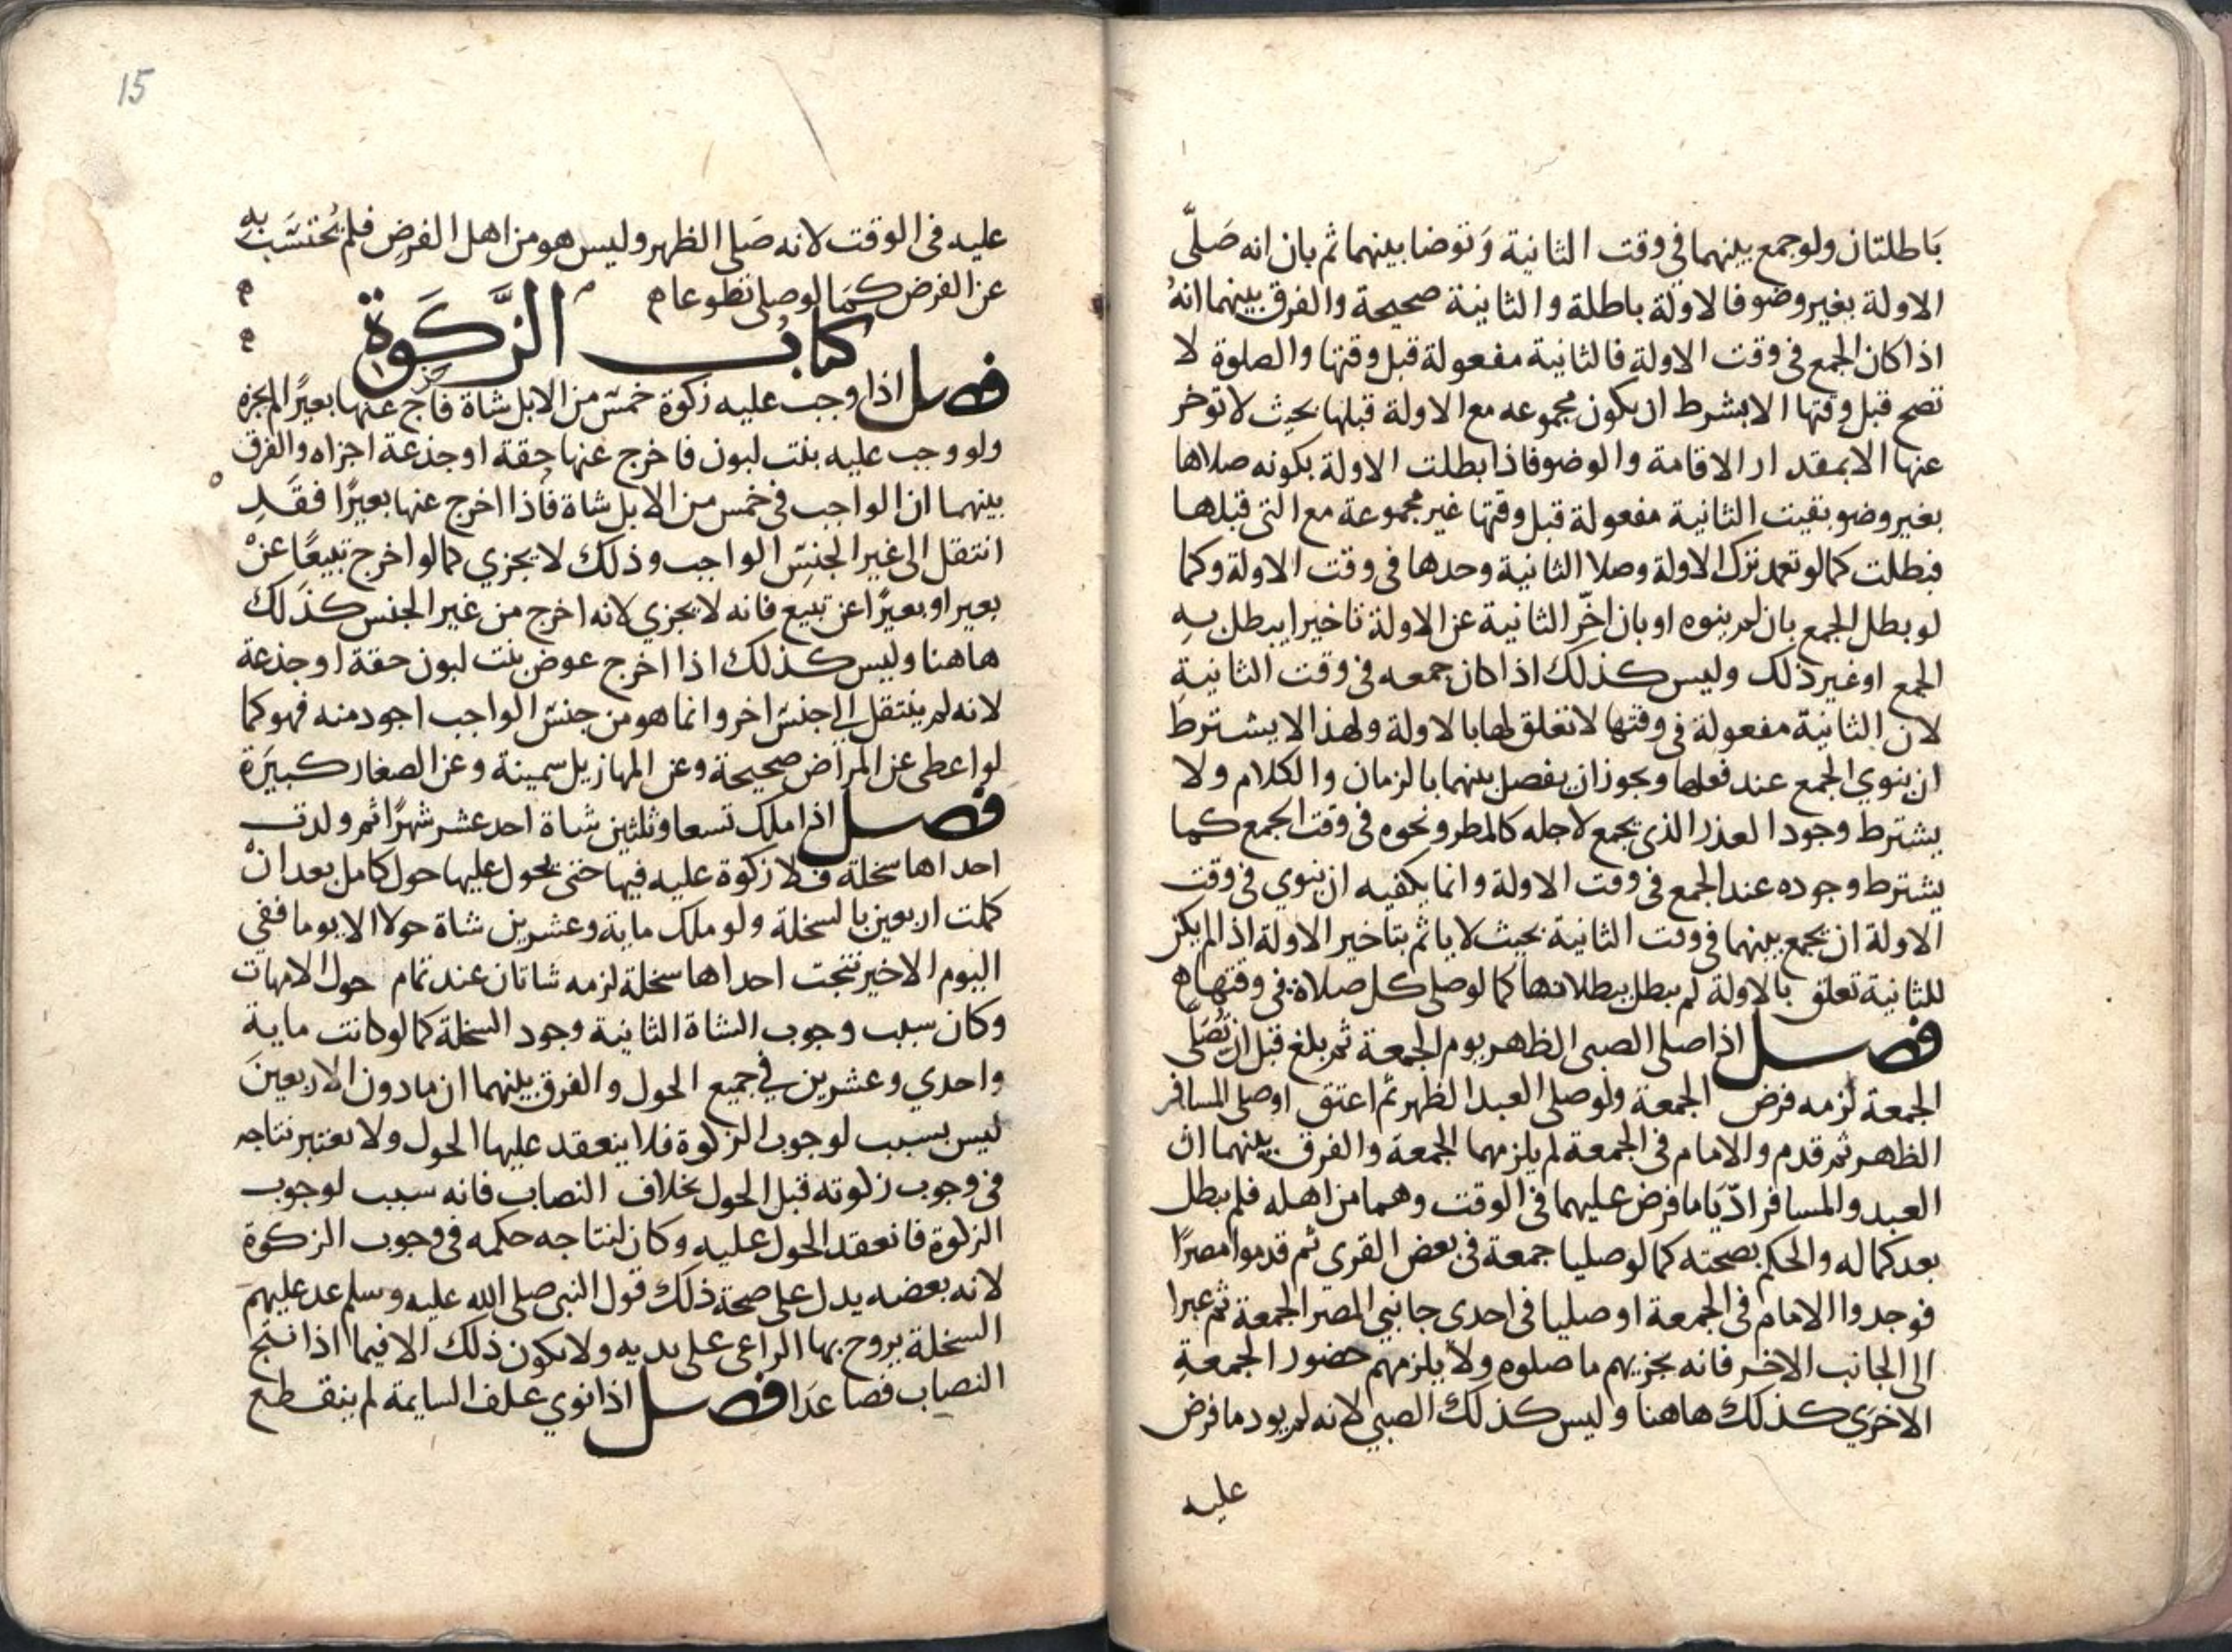 بَاطلتان ولو جمع بينهما في وقت الثانية وَتوضا بينهما ثم بان انه صَلّى
الاولة بغير وضو فالاولة باطلة والثانية صحيحة والفرق بينهما انهُ
اذا كان الجمع في وقت الاولة فالثانية مفعولة قبل وقتها والصلوة لا
تصح قبل وقتها الا بشرط ان يكون مجموعه مع الاولة قبلها بحيث لا توخر
عنها الا بمقدار الاقامة والوضو فاذا بطلت الاولة بكونه صلاها
بغير وضو بقيت الثانية مفعولة قبل وقتها غير مجموعة مع التي قبلها
فبطلت كما لو تعمد ترك الاولة وصلا الثانية وحدها في وقت الاولة وكما
لو بطل الجمع بان لم ينوه او بان اخّر الثانية عن الاولة تاخيرا يبطل بهِ
الجمع او غير ذلك وليس كذلك اذا كان جمعه في وقت الثانيةِ
لان الثانية مفعولة في وقتها لا تعلق لها بالاولة ولهذا لا يشترط
ان ينوي الجمع عند فعلها ويجوز ان يفصل بينهما بالزمان والكلام ولا
يشترط وجود العذر الذي يجمع لاجله كالمطر ونحوه في وقت الجمع كما
يشترط وجوده عند الجمع في وقت الاولة وانما يكفيه ان ينوي في وقت
الاولة ان يجمع بينهما في وقت الثانية بحيث لا ياثم بتاخير الاولة اذا لم يكن
للثانية تعلق بالاولة لم يبطل ببطلانها كما لو صلى كل صلاة في وقتها ه
فصل اذا صلى الصبي الظهر يوم الجمعة ثم بلغ قبل ان تُصَلّى
الجمعة لزمه فرض الجمعة ولو صلى العبد الظهر ثم اعتق او صلى المسافر
الظهر ثم قدم والامام في الجمعة لم يلزمهما الجمعة والفرق بينهما ان
العبد والمسافر ادّيَا ما فرض عليهما في الوقت وهما من اهله فلم يبطل
بعد كماله والحكم بصحته كما لو صليا جمعة في بعض القرى ثم قدموا مصرًا
فوجدوا الامام في الجمعة او صليا في احدى جانبي المصر الجمعة ثم عبرا
الى الجانب الاخر فانه يجزيهم ما صلوه ولا يلزمهم حضور الجمعةِ
الاخرَي كذلك هاهنا وليس كذلك الصبي لانه لم يود ما فرض
عليه
15
عليه في الوقت لانه صَلى الظهر وليس هو من اهل الفرض فلم يُحتسَب بهِ
عن الفرض كمَا لو صلى تطوعا م
كتاب الزَّكَوة
فصل اذا وجب عليه زكوة خمسٍ من الابل شاة فاخرج عنها بعيرًا لم يجزه
ولو وجب عليه بنت لبون فاخرج عنها حِقة او جذعة اجزاه والفرق
بينهما ان الواجب في خمس من الابل شاة فاذا اخرج عنها بعيرًا فقَدِ
انتقل الى غير الجنسِ الواجب وذلك لا يجزي كما لو اخرج تبيعًا عنْ
بعير او بعيرًا عن تبيع فانه لا يجزي لانه اخرج من غير الجنس كذَلك
هاهنا وليس كذلك اذا اخرج عوض بنت لبون حقة او جذعة
لانه لم ينتقل الى جنسٍ اخر وانما هو من جنسِ الواجب اجود منه فهو كما
لو اعطى عن المراض صحيحة وعن المهازيل سمينة وعن الصغار كبيَرة
فصل اذا ملك تسعا وثلثين شاة احد عشر شهرًا ثم ولدت
احداها سخلة فلا زكوة عليه فيها حتى يحول عليها حول كامل بعد انْ
كملت اربعين بالسخلة ولو ملك ماية وعشرين شاة حولا الا يوما ففي
اليوم الاخير نتجت احداها سخلة لزمه شاتان عند تمام حول الامهات
وكان سبب وجوب الشاة الثانية وجود السخلة كما لو كانت ماية
واحدي وعشرين في جميع الحول والفرق بينهما ان ما دون الاربعينَ
ليس بسبب لوجوب الزكوة فلا ينعقد عليها الحول ولا يعتبر نتاجه
في وجوب زكوته قبل الحول بخلاف النصاب فانه سبب لوجوب
الزكوة فانعقد الحول عليه وكان لنتاجه حكمه في وجوب الزكوة
لانه بعضه يدل على صحة ذلك قول النبي صلى الله عليه وسلم عد عليهمَ
السخلة يروح بها الراعى على يديه ولا يكون ذلك الا فيما اذا نتج
النصاب فصاعدَا فصل اذا نوي علف السايمة لم ينقطع